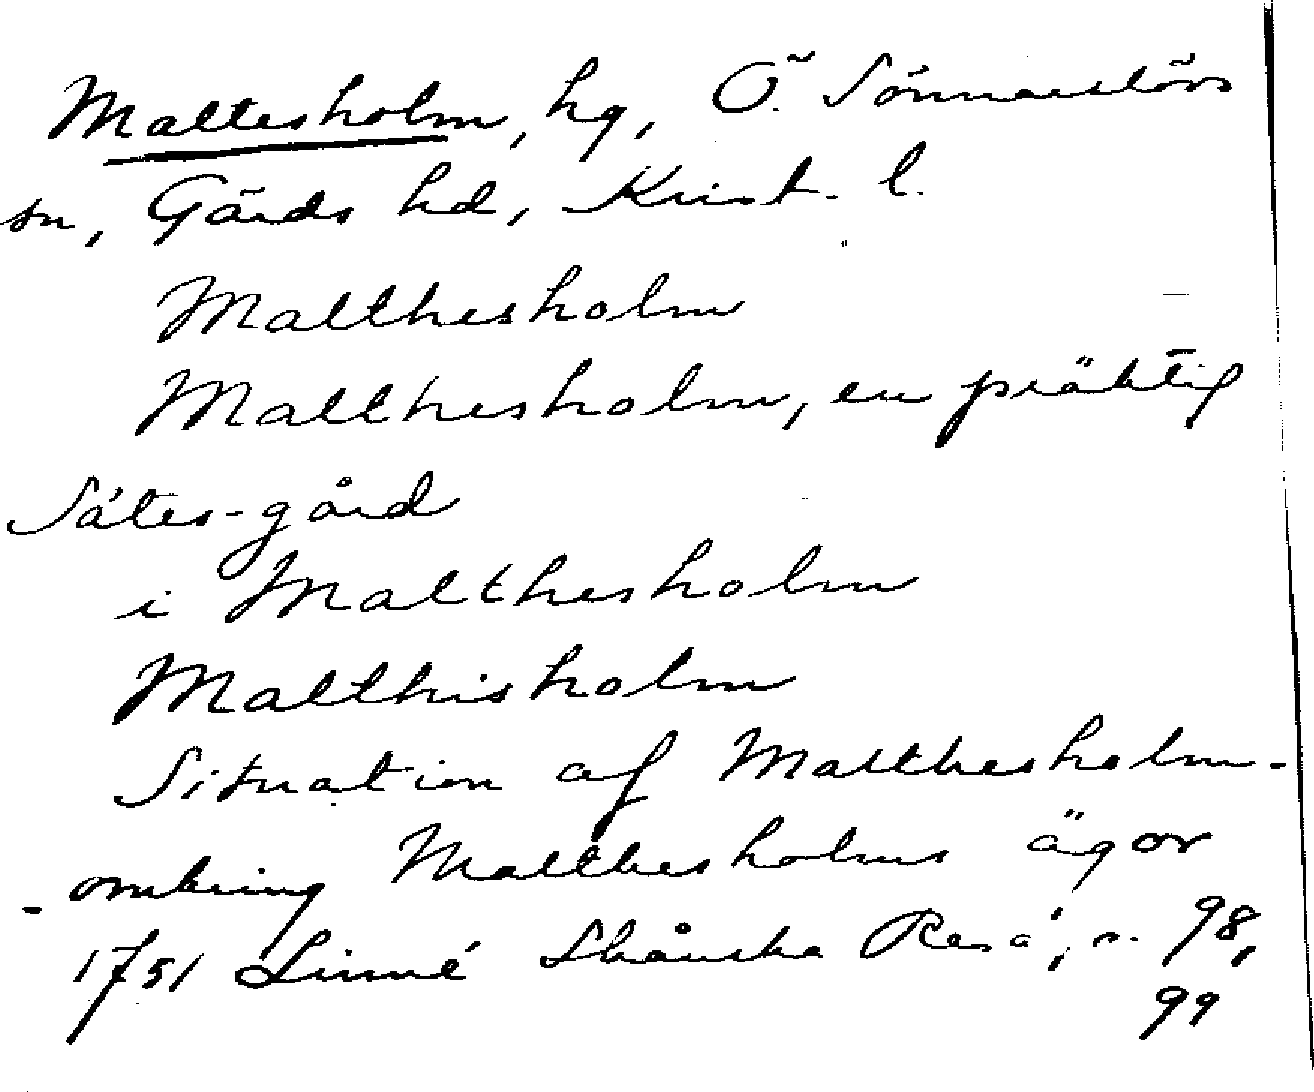 Maltesholm, hg, Ö. Sönnarslövs
sn, Gärds hd, Krist. l.
Malthesholm
Malthesholm, en präktig
Sätes-gård
i Malthesholm
Malthisholm
Situation af Malthesholm -
- omkring Malthesholms ägor
1751 Linné Skånska Resa, s. 98,
99